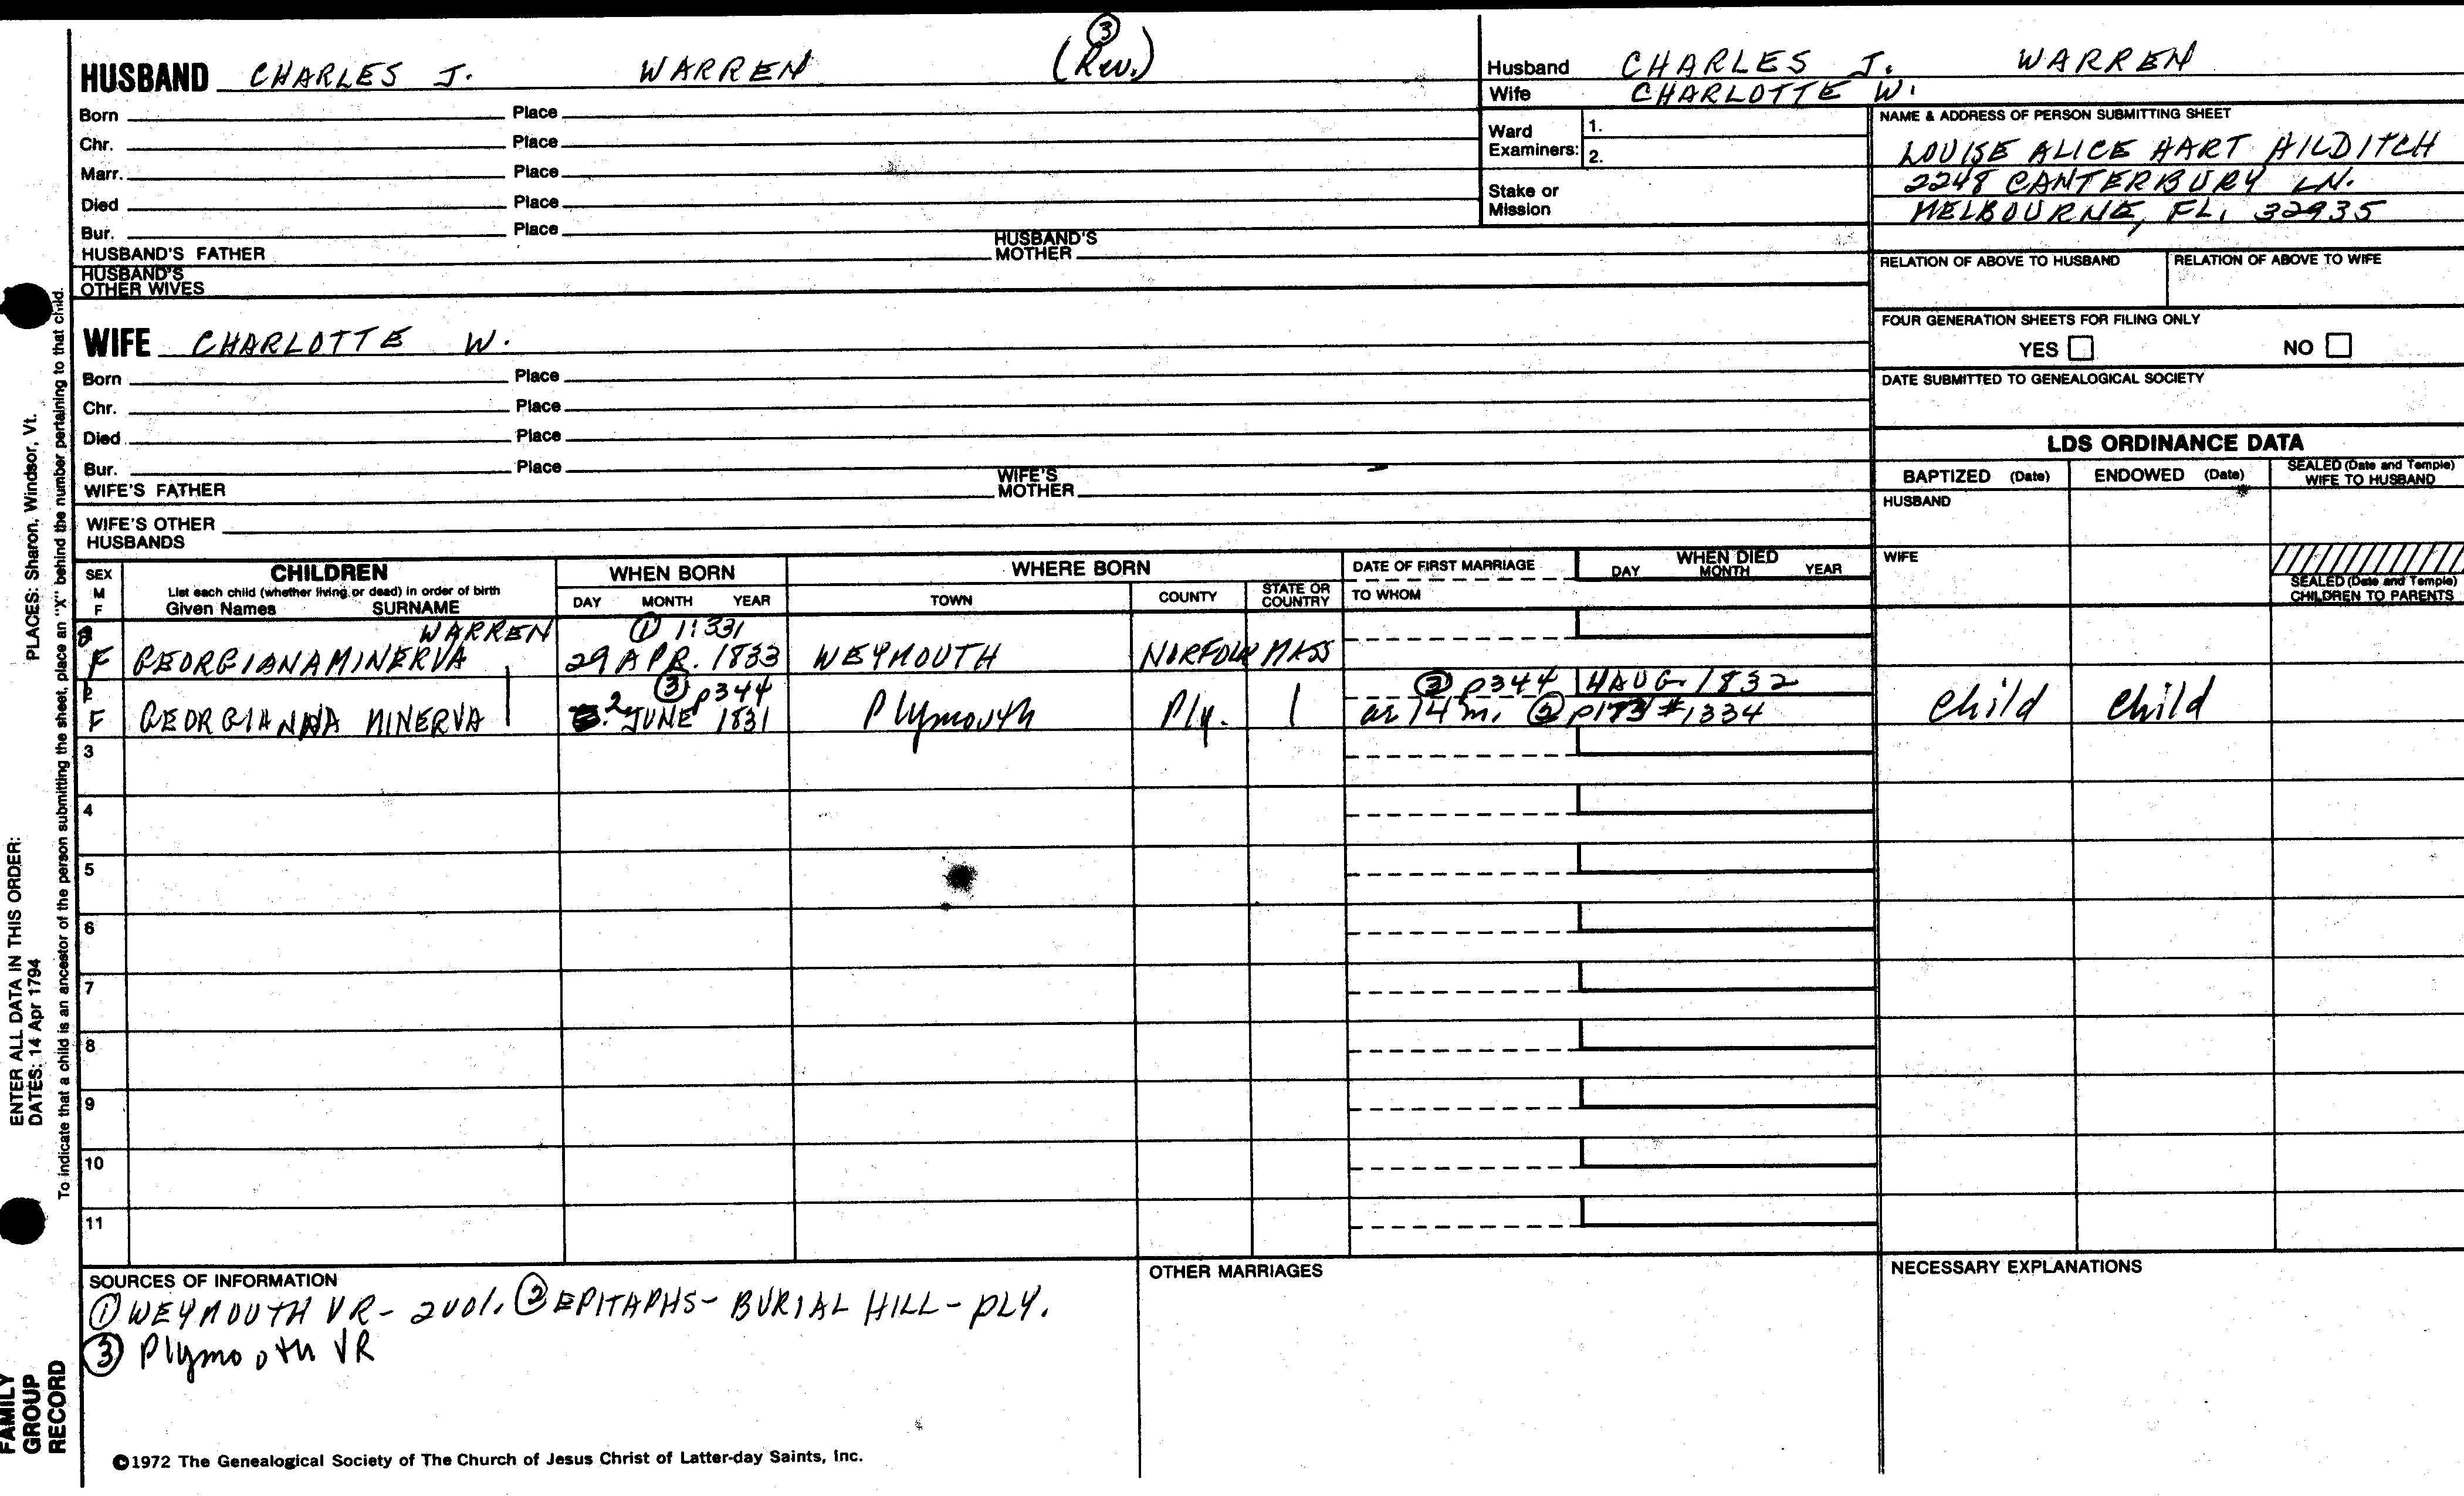 ③
HUSBAND CHARLES J. WARREN (Rev.)
Born Place
Chr. Place
Marr. Place
Died Place
Bur. Place
HUSBAND'S FATHER HUSBAND'S MOTHER
HUSBAND'S OTHER WIVES
WIFE CHARLOTTE W.
Born Place
Chr. Place
Died Place
Bur. Place
WIFE'S FATHER WIFE'S MOTHER
WIFE'S OTHER HUSBANDS
Husband CHARLES J. WARREN
Wife CHARLOTTE W.
Ward Examiners: 1.
2.
Stake or Mission
NAME & ADDRESS OF PERSON SUBMITTING SHEET
LOUISE ALICE HART HILDITCH
2248 CANTERBURY LN.
MELBOURNE, FL, 32935
RELATION OF ABOVE TO HUSBAND RELATION OF ABOVE TO WIFE
FOUR GENERATION SHEETS FOR FILING ONLY
YES NO
DATE SUBMITTED TO GENEALOGICAL SOCIETY
LDS ORDINANCE DATA
BAPTIZED (Date) ENDOWED (Date) SEALED (Date and Temple) WIFE TO HUSBAND
HUSBAND
WIFE
SEALED (Date and Temple) CHILDREN TO PARENTS
SEX M F
CHILDREN
List each child (whether living or dead) in order of birth
Given Names SURNAME
WHEN BORN
DAY MONTH YEAR
WHERE BORN
TOWN COUNTY STATE OR COUNTRY
DATE OF FIRST MARRIAGE
TO WHOM
WHEN DIED
DAY MONTH YEAR
WARREN ① 1:331
F GEORGIANA MINERVA 29 APR. 1833 WEYMOUTH NORFOLK MASS
③ p344 ③ p344 4 AUG. 1832
F GEORGIANNA MINERVA | 2 JUNE 1831 Plymouth Ply. | ae 14 m. ② p173 #1334 child child
3
4
5
6
7
8
9
10
11
SOURCES OF INFORMATION
① WEYMOUTH VR - 2 vol. ② EPITAPHS - BURIAL HILL - PLY.
③ Plymouth VR
OTHER MARRIAGES
NECESSARY EXPLANATIONS
©1972 The Genealogical Society of The Church of Jesus Christ of Latter-day Saints, Inc.
FAMILY GROUP RECORD
ENTER ALL DATA IN THIS ORDER:
DATES: 14 Apr 1794
PLACES: Sharon, Windsor, Vt.
To indicate that a child is an ancestor of the person submitting the sheet, place an "X" behind the number pertaining to that child.